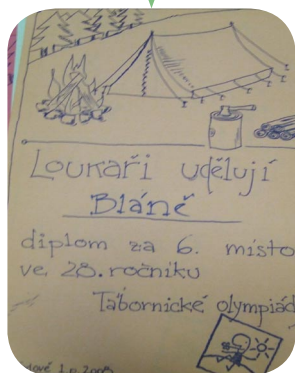 Loukaři udělují
Bláně
diplom za 6. místo
ve 28. ročníku
Tábornické olympiád